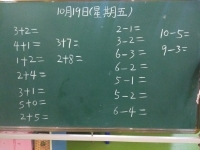 10月19日(星期五)
3+2=
4+1=
1+2=
2+4=
3+1=
5+0=
2+5=
3+7=
2+8=
2-1=
3-2=
6-3=
6-2=
5-1=
5-2=
6-4=
10-5=
9-3=